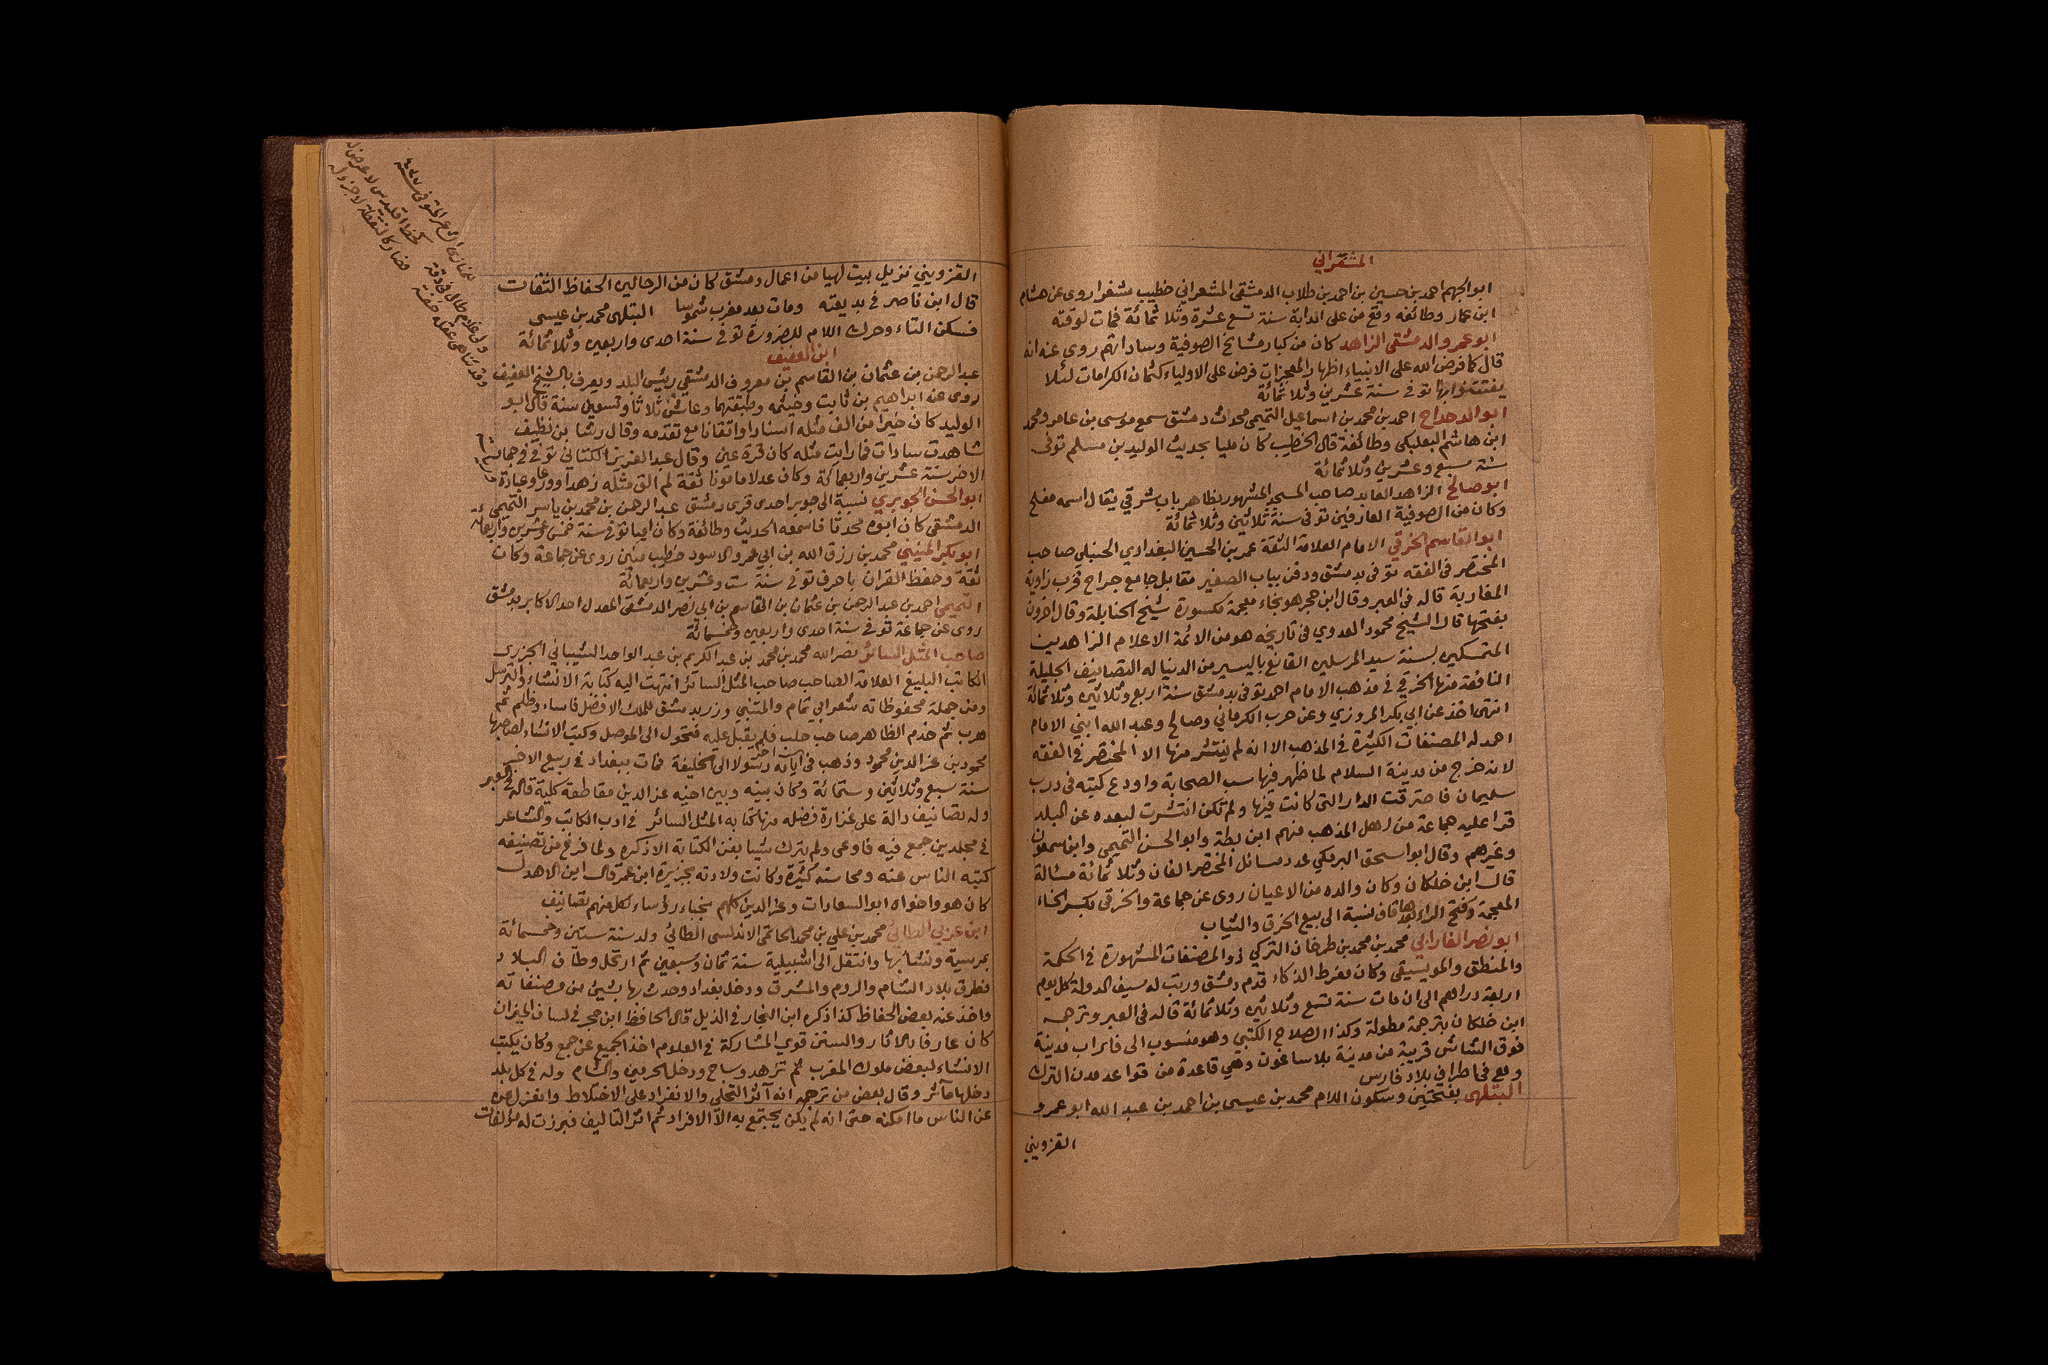 المشغراني
ابو الجهم احمد بن حسين بن احمد بن طلاب الدمشقي المشعراني خطيب مشغرا روى عن هشام
ابن عمار وطائفه وقع من على الدابة سنة تسع عشرة وثلاثمائة فمات لوقته
ابو عمرو الدمشقي الزاهد كان من كبار مشائخ الصوفية وساداتهم روى عنه انه
قال كما فرض الله على الانبياء اظهار المعجزات فرض على الاولياء كتمان الكرامات لئلا
يفتتنوا بها توفي سنة عشرين وثلاثمائة
ابو الدحداح احمد بن محمد بن اسماعيل التميمي محدث دمشق سمع موسى بن عامر ومحمد
ابن هاشم البعلبكي وطائفة قال الخطيب كان مليا بحديث الوليد بن مسلم توفى
سنة سبع وعشرين وثلاثمائة
ابو صالح الزاهد العابد صاحب المسجد المشهور بظاهر باب شرقي يقال اسمه مفلح
وكان من الصوفية العارفين توفى سنة ثلاثين وثلاثمائة
ابو القاسم الخرقي الامام العلامة الثقة عمر بن الحسين البغدادي الحنبلي صاحب
المختصر في الفقه توفى بدمشق ودفن بباب الصغير مقابل جامع جراح قرب زاوية
المغاربة قاله في العبر وقال ابن حجر هو بخاء معجمة مكسورة شيخ الحنابلة وقال اخرون
بفتحها قال الشيخ محمود العدوي في تاريخه هو من الائمة الاعلام الزاهدين
المتمسكين بسنة سيد المرسلين القانع باليسير من الدنيا له التصانيف الجليلة
النافعة منها الخرقي في مذهب الامام احمد توفى بدمشق سنة اربع وثلاثين وثلاثمائة
انتهى اخذ عن ابي بكر المروزي وعن حرب الكرماني وصالح وعبد الله ابني الامام
احمد له المصنفات الكثيرة في المذهب الا انه لم ينتشر منها الا المختصر في الفقه
لانه خرج من مدينة السلام لما ظهر فيها سب الصحابة واودع كتبه في درب
سليمان فاحترقت الدار التي كانت فيها ولم تكن انتشرت لبعده عن البلد
قرا عليه جماعة من اهل المذهب منهم ابن بطة وابو الحسن التميمي وابن سمعون
وغيرهم وقال ابو اسحق البرمكي عدد مسائل المختصر الفان وثلاثمائة مسالة
قال ابن خلكان وكان والده من الاعيان روى عن جماعة والخرقي بكسر الخاء
المعجمة وفتح الراء بعدها قاف نسبة الى بيع الخرق والثياب
ابو نصر الفارابي محمد بن محمد بن طرخان التركي ذو المصنفات المشهورة في الحكمة
والمنطق والموسيقى وكان مفرط الذكاء قدم دمشق ورتب له سيف الدولة كل يوم
اربعة دراهم الى ان مات سنة تسع وثلاثين وثلاثمائة قاله في العبر وترجمه
ابن خلكان بترجمة مطولة وكذا الصلاح الكتبي وهو منسوب الى فاراب مدينة
فوق الشاش قريبة من مدينة بلاساغون وهي قاعدة من قواعد مدن الترك
وهي في اطراف بلاد فارس
البتلهي بفتحتين وسكون اللام محمد بن عيسى بن احمد بن عبد الله ابو عمرو
القزويني
القزويني نزيل بيت لهيا من اعمال دمشق كان من الرحالين الحفاظ الثقات
قال ابن ناصر في بديعته ومات بعد مغرب شموسا البتلهي محمد بن عيسى
فسكن التاء وحرك اللام للضرورة توفي سنة احدى واربعين وثلاثمائة
ابن العفيف
عبد الرحمن بن عثمان بن القاسم بن معروف الدمشقي رئيس البلد ويعرف بالشيخ العفيف
روى عن ابراهيم بن ثابت وخيثمه وطبقتهما وعاش ثلاثا وتسعين سنة قال ابو
الوليد كان خيرا من الف مثله اسنادا واتقانا مع تقدمه وقال رشا بن نظيف
شاهدت سادات فما رايت مثله كان قرة عين وقال عبد العزيز الكتاني توفي في جمادى
الاخر سنة عشرين واربعمائة وكان عدلا مامونا ثقة لم الق مثله زهدا وورعا وعبادة
ابو الحسن الجوبري نسبة الى جوبر احدى قرى دمشق عبد الرحمن بن محمد بن ياسر التميمي
الدمشقي كان ابوه محدثا فاسمعه الحديث وطائفة وكان اميا توفى سنة خمس وعشرين واربعمائة
ابو بكر المنيني محمد بن رزق الله بن ابي عمرو الاسود خطيب منين روى عن جماعة وكان
ثقة وحفظ القران باحرف توفي سنة ست وعشرين واربعمائة
التميمي احمد بن عبد الرحمن بن عثمان بن القاسم بن ابي نصر الدمشقي المعدل احد الاكابر بدمشق
روى عن جماعة توفي سنة احدى واربعين وخمسمائة
صاحب المثل السائر نصر الله محمد بن محمد بن عبد الكريم بن عبد الواحد الشيباني الجزري
الكاتب البليغ العلامة الصاحب صاحب المثل السائر انتهت اليه كتابة الانشاء والترسل
ومن جملة محفوظاته شعر ابي تمام والمتنبي وزر بدمشق للملك الافضل فاساء وظلم ثم
هرب ثم خدم الظاهر صاحب حلب فلم يقبل عليه فتحول الى الموصل وكتب الانشاء لصاحبها
محمود بن عز الدين محمود وذهب في رسولا الى الخليفة فمات ببغداد في ربيع الاخر
سنة سبع وثلاثين وستمائة وكان بينه وبين اخيه عز الدين مقاطعة كلية قاله في العبر
وله تصانيف دالة على غزارة فضله منها كتابه المثل السائر في ادب الكاتب والشاعر
في مجلدين جمع فيه فاوعى ولم يترك شيئا بفن الكتابة الا ذكره ولما فرغ من تصنيفه
كتبه الناس عنه ومحاسنه كثيرة وكانت ولادته بجزيرة ابن عمر قال ابن الاهدل
كان هو واخواه ابو السعادات وعز الدين كلهم نجباء رؤساء لكل منهم تصانيف
ابن عربي الطائي محمد بن علي بن محمد الحاتمي الاندلسي الطائي ولد سنة ستين وخمسمائة
بمرسية ونشا بها وانتقل الى اشبيلية سنة ثمان وسبعين ثم ارتحل وطاف البلاد
فطرق بلاد الشام والروم والمشرق ودخل بغداد وحدث بها بشيئ من مصنفاته
واخذ عنه بعض الحفاظ كذا ذكره ابن النجار في الذيل قال الحافظ ابن حجر في لسان الميزان
كان عارفا بالاثار والسنن قوي المشاركة في العلوم اخذ الجميع عن جمع وكان يكتب
الانشاء لبعض ملوك المغرب ثم تزهد وساح ودخل الحرمين والشام وله في كل بلد
دخلها مآثر وقال بعض من ترجمه انه آثر التخلي والانفراد على الاختلاط وانعزل عن
عن الناس ما امكنه حتى انه لم يكن يجتمع به الا الافراد ثم اثر التاليف فبرزت له مؤلفات